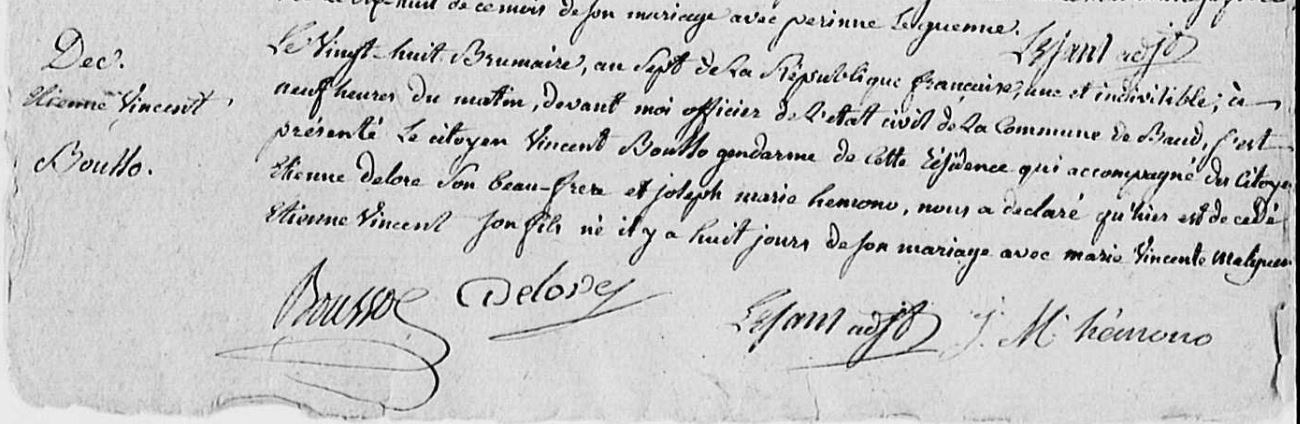 dix-huit de ce mois de son mariage avec perinne Le guenne.
Lesant adjt
Dec.
Etienne Vincent
Bousso.
Le Vingt-huit Brumaire, an Sept de La République francaise, une et indivisible; à
neuf heures du matin, devant moi officier de L'etat civil de La Commune de Baud, s'est
présenté Le citoyen Vincent Bousso gendarme de cette résidence qui accompagné du Citoyen
Etienne delore Son beau-frere et joseph marie hemono, nous a declaré qu'hier est decedé
Etienne Vincent son fils né il y a huit jours de son mariage avec marie Vincente
Bousso Delore
Lesant adjt J. M. hémono